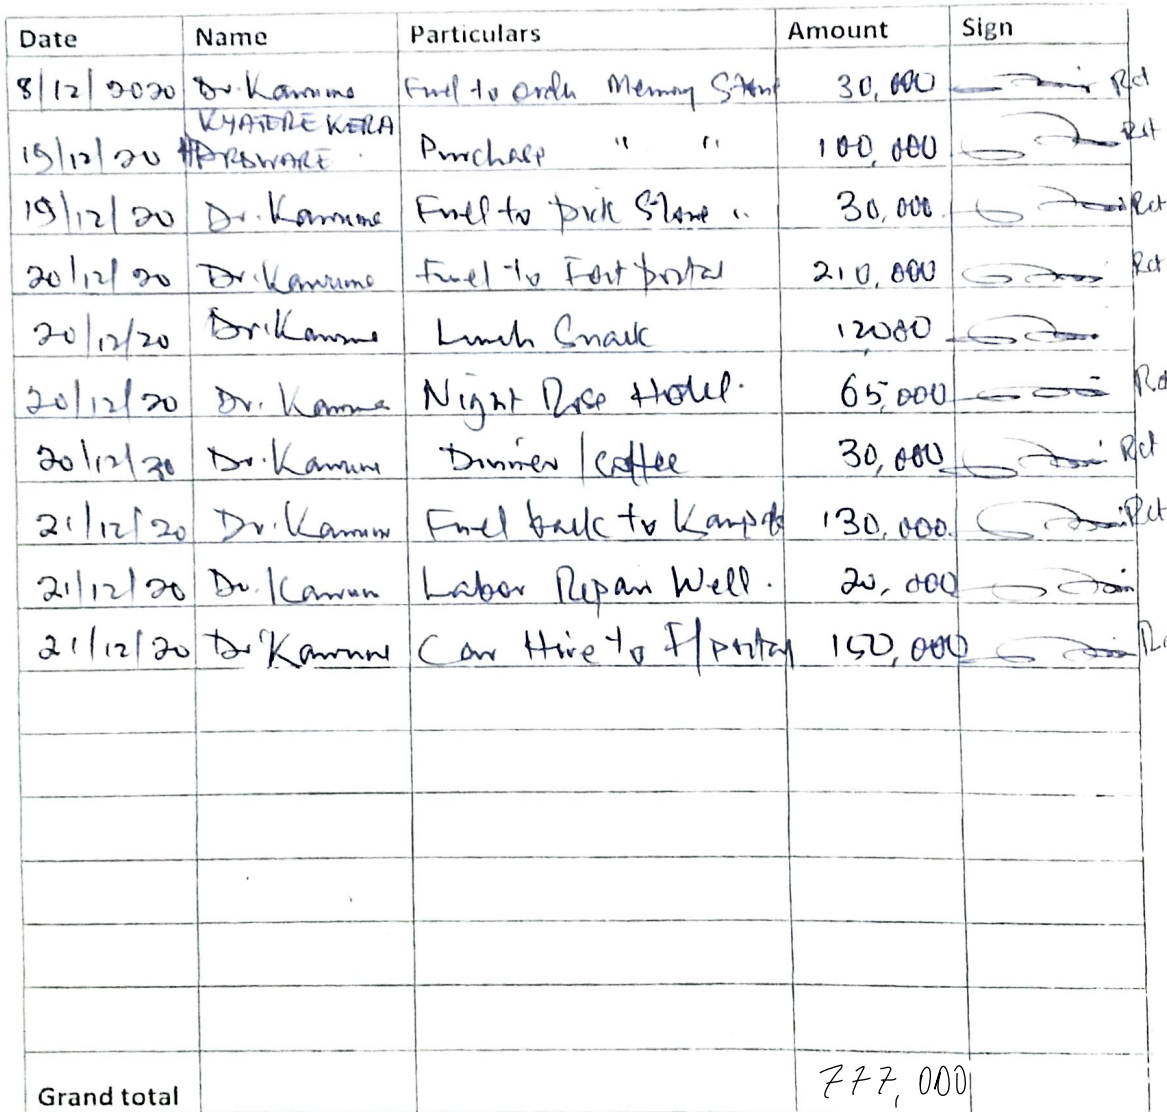 Date Name Particulars Amount Sign
8/12/2020 Dr. Kamume Fuel to order Memory Stone 30,000 Rct
KYATEREKERA
15/12/20 HARDWARE Purchase " " 100,000 Rct
19/12/20 Dr. Kamume Fuel to pick Stone " 30,000 Rct
20/12/20 Dr. Kamume Fuel to Fort portal 210,000 Rct
20/12/20 Dr. Kamume Lunch Snack 12000
20/12/20 Dr. Kamume Night Rose Hotel. 65,000 Rct
20/12/20 Dr. Kamume Dinner/coffee 30,000 Rct
21/12/20 Dr. Kamume Fuel back to Kampala 130,000 Rct
21/12/20 Dr. Kamume Labor Repair Well. 20,000
21/12/20 Dr. Kamume Car Hire to F/portal 150,000
Grand total 777,000